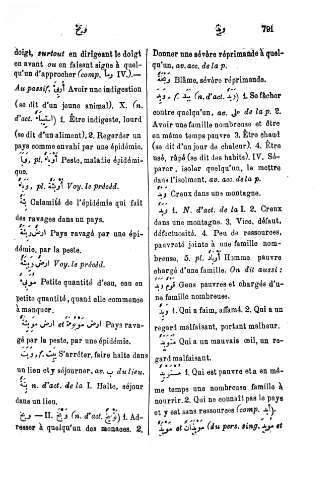 وبخ
وبد 791
doigt, surtout en dirigeant le doigt
en avant ou en faisant signe à quel-
qu'un d'approcher (comp. IV).—
Au passif, Avoir une indigestion
(se dit d'un jeune animal). X. (n.
d'act. 1. Être indigeste, lourd
(se dit d'un aliment). 2. Regarder un
pays comme envahi par une épidémie.
pl. Peste, maladie épidémi-
que.
pl. Voy. le précéd.
Calamité de l'épidémie qui fait
des ravages dans un pays.
Pays ravagé par une épi-
démie, par la peste.
Voy. le précéd.
Petite quantité d'eau, eau en
petite quantité, quand elle commence
à manquer.
et Pays rava-
gé par la peste, par une épidémie.
f. S'arrêter, faire halte dans
un lieu et y séjourner, av. ب du lieu.
n. d'act. de la I. Halte, séjour
dans un lieu.
— II. (n. d'act. 1. Ad-
resser à quelqu'un des menaces. 2.
Donner une sévère réprimande à quel-
qu'un, av. acc. de la p.
Blâme, sévère réprimande.
f. (n. d'act. 1. Se fâcher
contre quelqu'un, av. على de la p. 2.
Avoir une famille nombreuse et être
en même temps pauvre 3. Être chaud
(se dit d'un jour de chaleur). 4. Être
usé, râpé (se dit des habits). IV. Sé-
parer, isoler quelqu'un, le mettre
dans l'isolement, av. acc. de la p.
Creux dans une montagne.
1. N. d'act. de la I. 2. Creux
dans une montagne. 3. Vice, défaut,
défectuosité. 4. Peu de ressources,
pauvreté jointe à une famille nom-
breuse. 5. pl. Homme pauvre
chargé d'une famille. On dit aussi :
Gens pauvres et chargés d'u-
ne famille nombreuse.
1. Qui a faim, affamé. 2. Qui a un
regard malfaisant, portant malheur.
Qui a un mauvais œil, un re-
gard malfaisant.
1. Qui est pauvre et a en mê-
me temps une nombreuse famille à
nourrir. 2. Qui ne connaît pas le pays
et y est sans ressources (comp.
et (du pers. sing. et